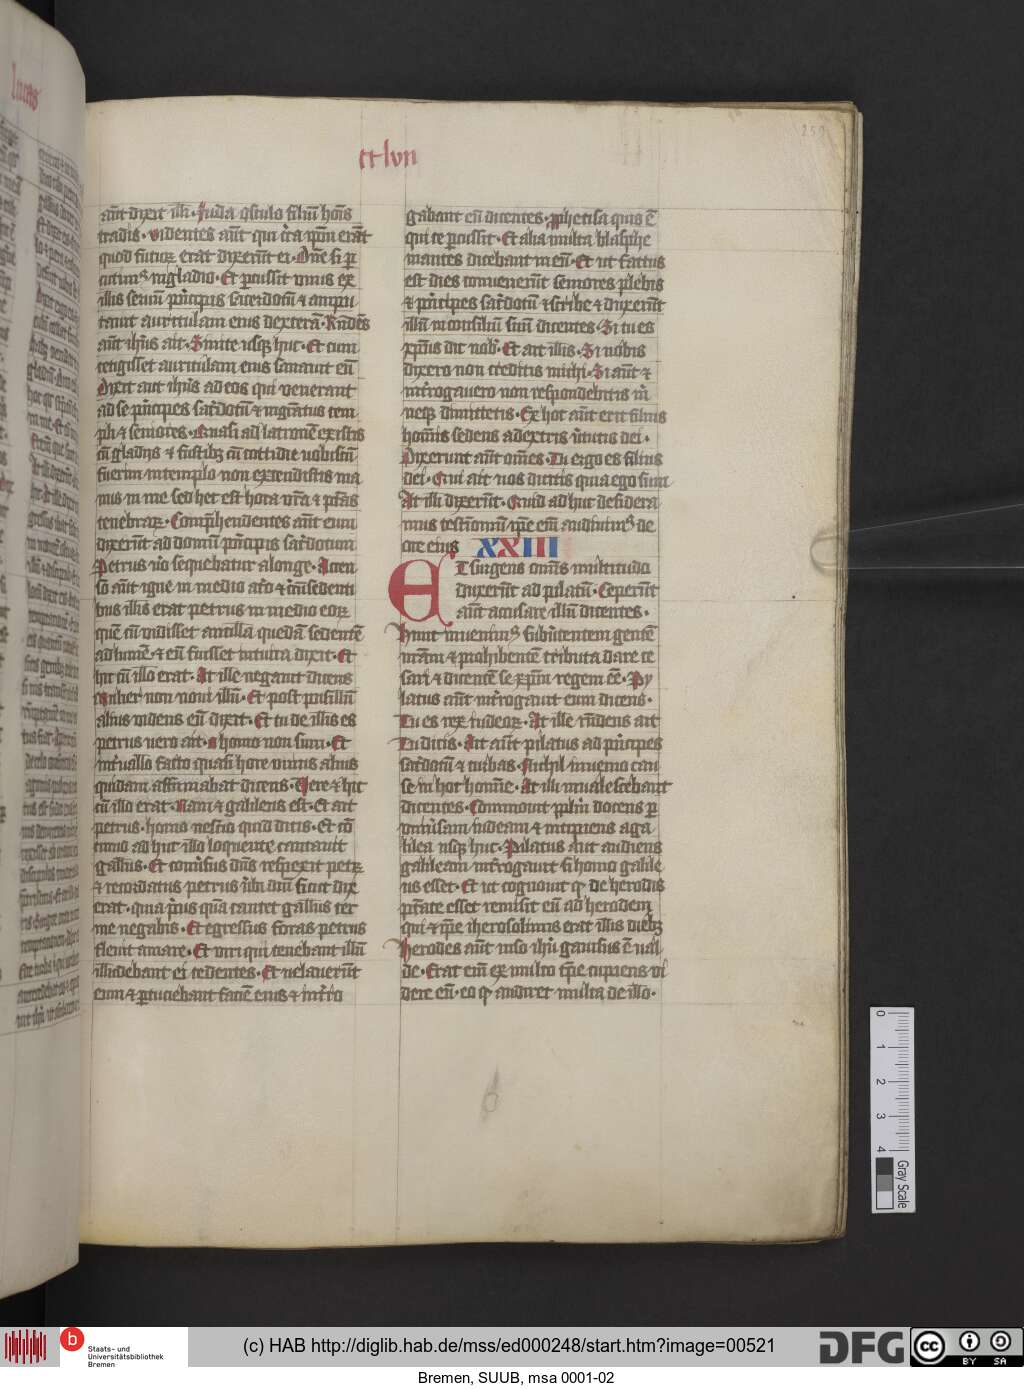 lucas
cclvii
259
aut̄ dixit illi. Juda osculo filiū hoīs
tradis. Videntes aut̄ qui circa ip̄m erāt
quod futurꝫ erat dixerūt ei. Dn̄e si ꝑ
cutimꝰ in gladio. Et ꝑcussit unus ex
illis seruū pͥncipis sacerdotū & ampu
tauit auriculam eius dexterā. Rn̄dēs
aut̄ ihūs ait. Sinite usqꝫ huc. Et cum
tetigisset auriculam eius sanauit eū
Dixit aut̄ ihūs ad eos qui venerant
ad se pͥncipes sac̄dotū & mgr̄atus tem
pli & seniores. Quasi ad latronē existis
cū gladijs & fustibꝫ cū cottidie uobiscū
fuerim in templo non extendistis ma
nus in me sed hec est hora vr̄a & ptās
tenebrarꝫ. Compͥhendentes aut̄ eum
dixerūt ad domū pͥncipis sac̄dotum
Petrus ūo sequebatur a longe. Accen
so aut̄ igne in medio at̄o & cͥcūsedenti
bus illis erat petrus in medio eorꝫ
quē cū vidisset ancilla quedā sedentē
ad lumē & eū fuisset intuita dixit. Et
hic cū illo erat. At ille negauit dicens
Mulier non noui illū. Et post pusillū
alius videns eū dixit. Et tu de illis es
petrus uero ait. O homo non sum. Et
int̄uallo facto quasi hore unius alius
quidam affirmabat dicens. Vere & hic
cū illo erat. Nam & galileus est. Et ait
petrus. homo nescio quid dicis. Et cō
tinuo ad huc illo loquente cantauit
gallus. Et conūsus dn̄s respexit petrꝫ
& recordatus petrus ūbi dn̄i sicut dix
erat. quia pͥus quā cantet gallus ter
me negabis. Et egressus foras petrus
fleuit amare. Et viri qui tenebant illū
illudebant ei cedentes. Et uelauerūt
eum & ꝑcuciebant faciē eius & int̄ro
gabant eū dicentes. ꝓphetisa quis ē
qui te ꝑcussit. Et alia multa blasphe
mantes dicebant in eū. Et ut factus
est dies conuenerūt seniores plebis
& pͥncipes sac̄dotū & scribe & duxerūt
illū in consiliū suū dicentes. Si tu es
xp̄us dic nob̄. Et ait illis. Si uobis
dixero non creditis michi. Si aut̄ &
int̄rogauero non respondebitis m̄
neqꝫ dimittetis. Ex hoc aut̄ erit filius
homīs sedens a dextris ūtutis dei.
Dixerunt aut̄ om̄es. Tu ergo es filius
dei. Qui ait uos dicitis quia ego sum
At illi dixerūt. Quid ad huc desidera
mus testīoniū ip̄e em̄ audiuimꝰ de
ore eius XXIII
Et surgens omīs multitudo
duxerūt ad pilatū. Ceperūt
aut̄ accusare illū dicentes.
Hunc inuenimꝰ subūtentem gentē
nr̄am & prohibentē tributa dare ce
sari & dicentē se xp̄m regem eē. Py
latus aut̄ int̄rogauit eum dicens.
Tu es rex iudeorꝫ. At ille rn̄dens ait
Tu dicis. Ait aut̄ pilatus ad pͥncipes
sac̄dotū & turbas. Nichil inuenio cau
se in hoc homīe. At illi inualescebant
dicentes. Commouit ppl̄m docens ꝑ
uniūsam iudeam & incipiens a ga
lilea usqꝫ huc. Pilatus aut̄ audiens
galileam int̄rogauit si homo galile
us esset. Et ut cognouit qͩ de herodis
ptāte esset remisit eū ad herodem
qui & ip̄e iherosolimis erat illis diebꝫ
Herodes aut̄ uiso ihū gauisus ē ual
de. Erat em̄ ex multo tp̄e cupiens vi
dere eū. eo qͩ audiret multa de illo.
0 1 2 3 4
Gray Scale
Staats- und
Universitätsbibliothek
Bremen
(c) HAB http://diglib.hab.de/mss/ed000248/start.htm?image=00521
DFG
cc BY SA
Bremen, SUUB, msa 0001-02